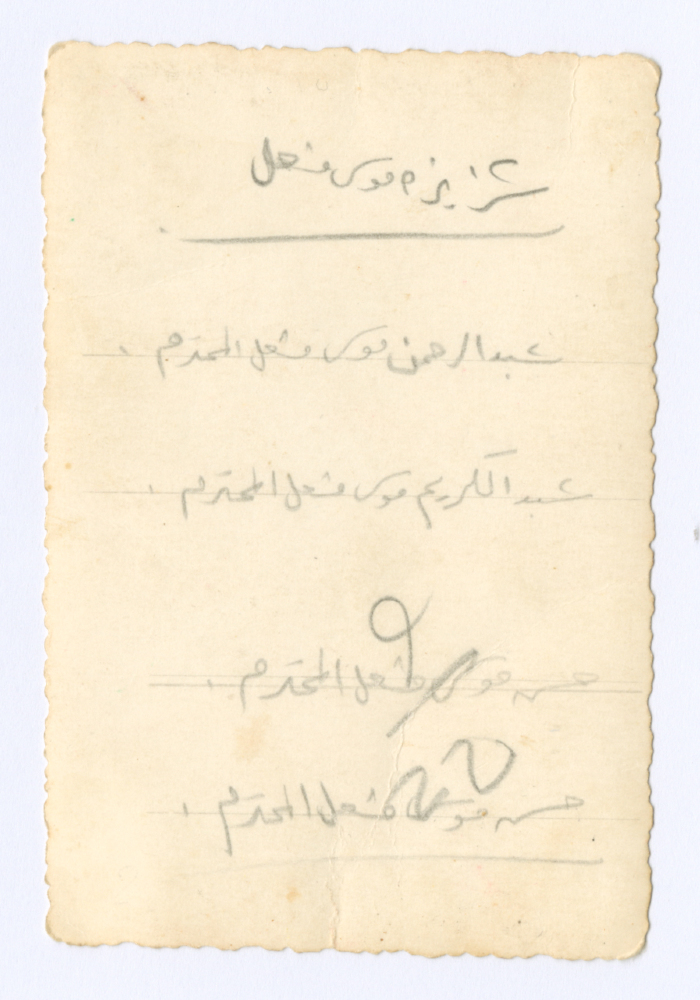 عزيزه موسى مشعل
عبدالرحمن موسى مشعل المحترم .
عبد الكريم موسى مشعل المحترم .
حسن موسى مشعل المحترم .
حسن موسى مشعل المحترم .